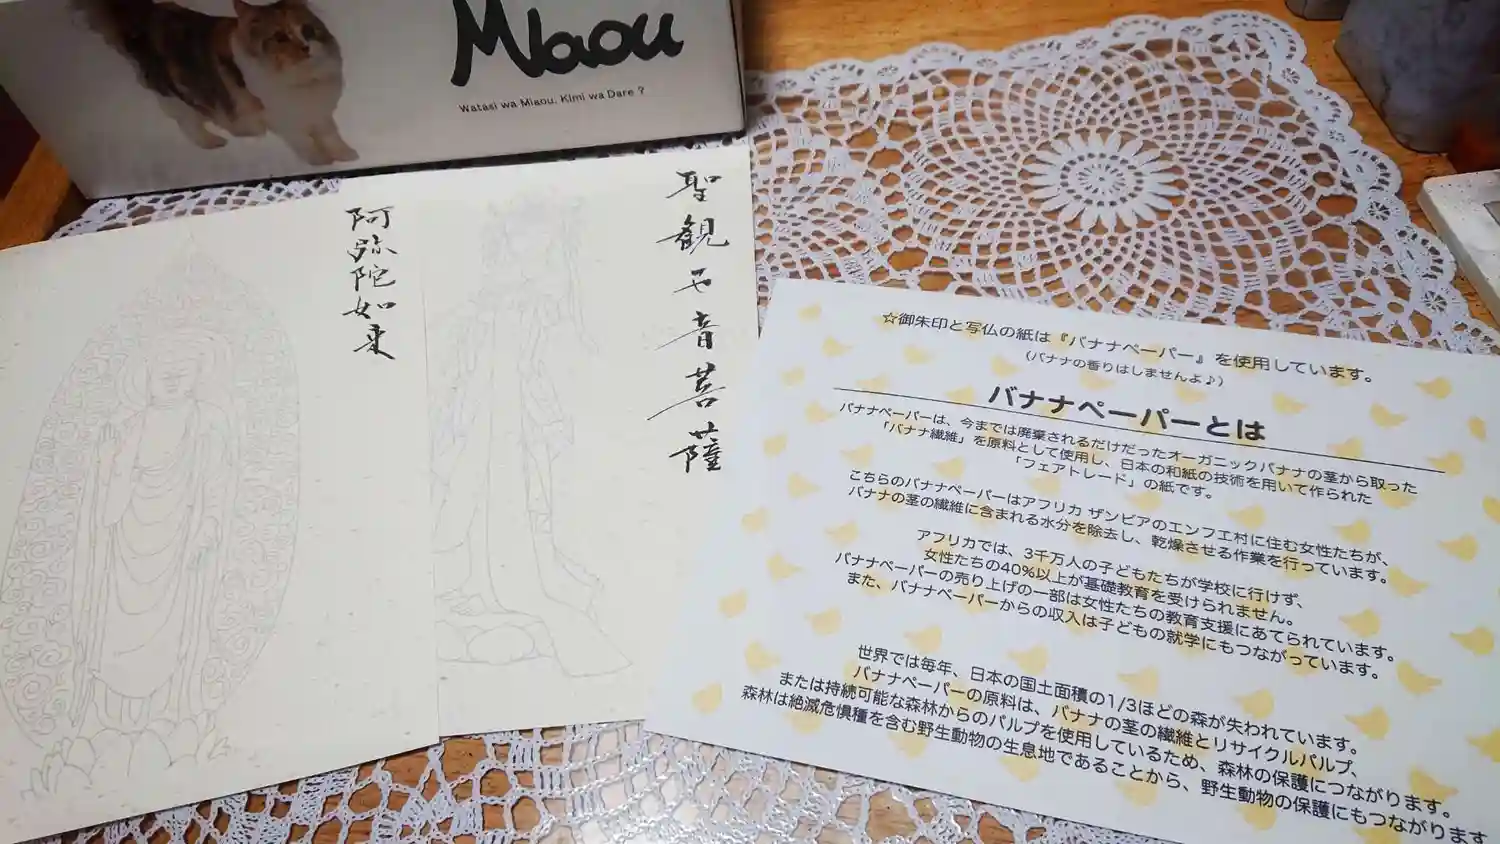 Miaou
Watasi wa Miaou. Kimi wa Dare ?
聖観世音菩薩
阿弥陀如来
☆御朱印と写仏の紙は『バナナペーパー』を使用しています。
（バナナの香りはしませんよ♪）
バナナペーパーとは
バナナペーパーは、今までは廃棄されるだけだったオーガニックバナナの茎から取った
「バナナ繊維」を原料として使用し、日本の和紙の技術を用いて作られた
「フェアトレード」の紙です。
こちらのバナナペーパーはアフリカ ザンビアのエンフエ村に住む女性たちが、
バナナの茎の繊維に含まれる水分を除去し、乾燥させる作業を行っています。
アフリカでは、3千万人の子どもたちが学校に行けず、
女性たちの40%以上が基礎教育を受けられません。
バナナペーパーの売り上げの一部は女性たちの教育支援にあてられています。
また、バナナペーパーからの収入は子どもの就学にもつながっています。
世界では毎年、日本の国土面積の1/3ほどの森が失われています。
バナナペーパーの原料は、バナナの茎の繊維とリサイクルパルプ、
または持続可能な森林からのパルプを使用しているため、森林の保護につながります。
森林は絶滅危惧種を含む野生動物の生息地であることから、野生動物の保護にもつながります